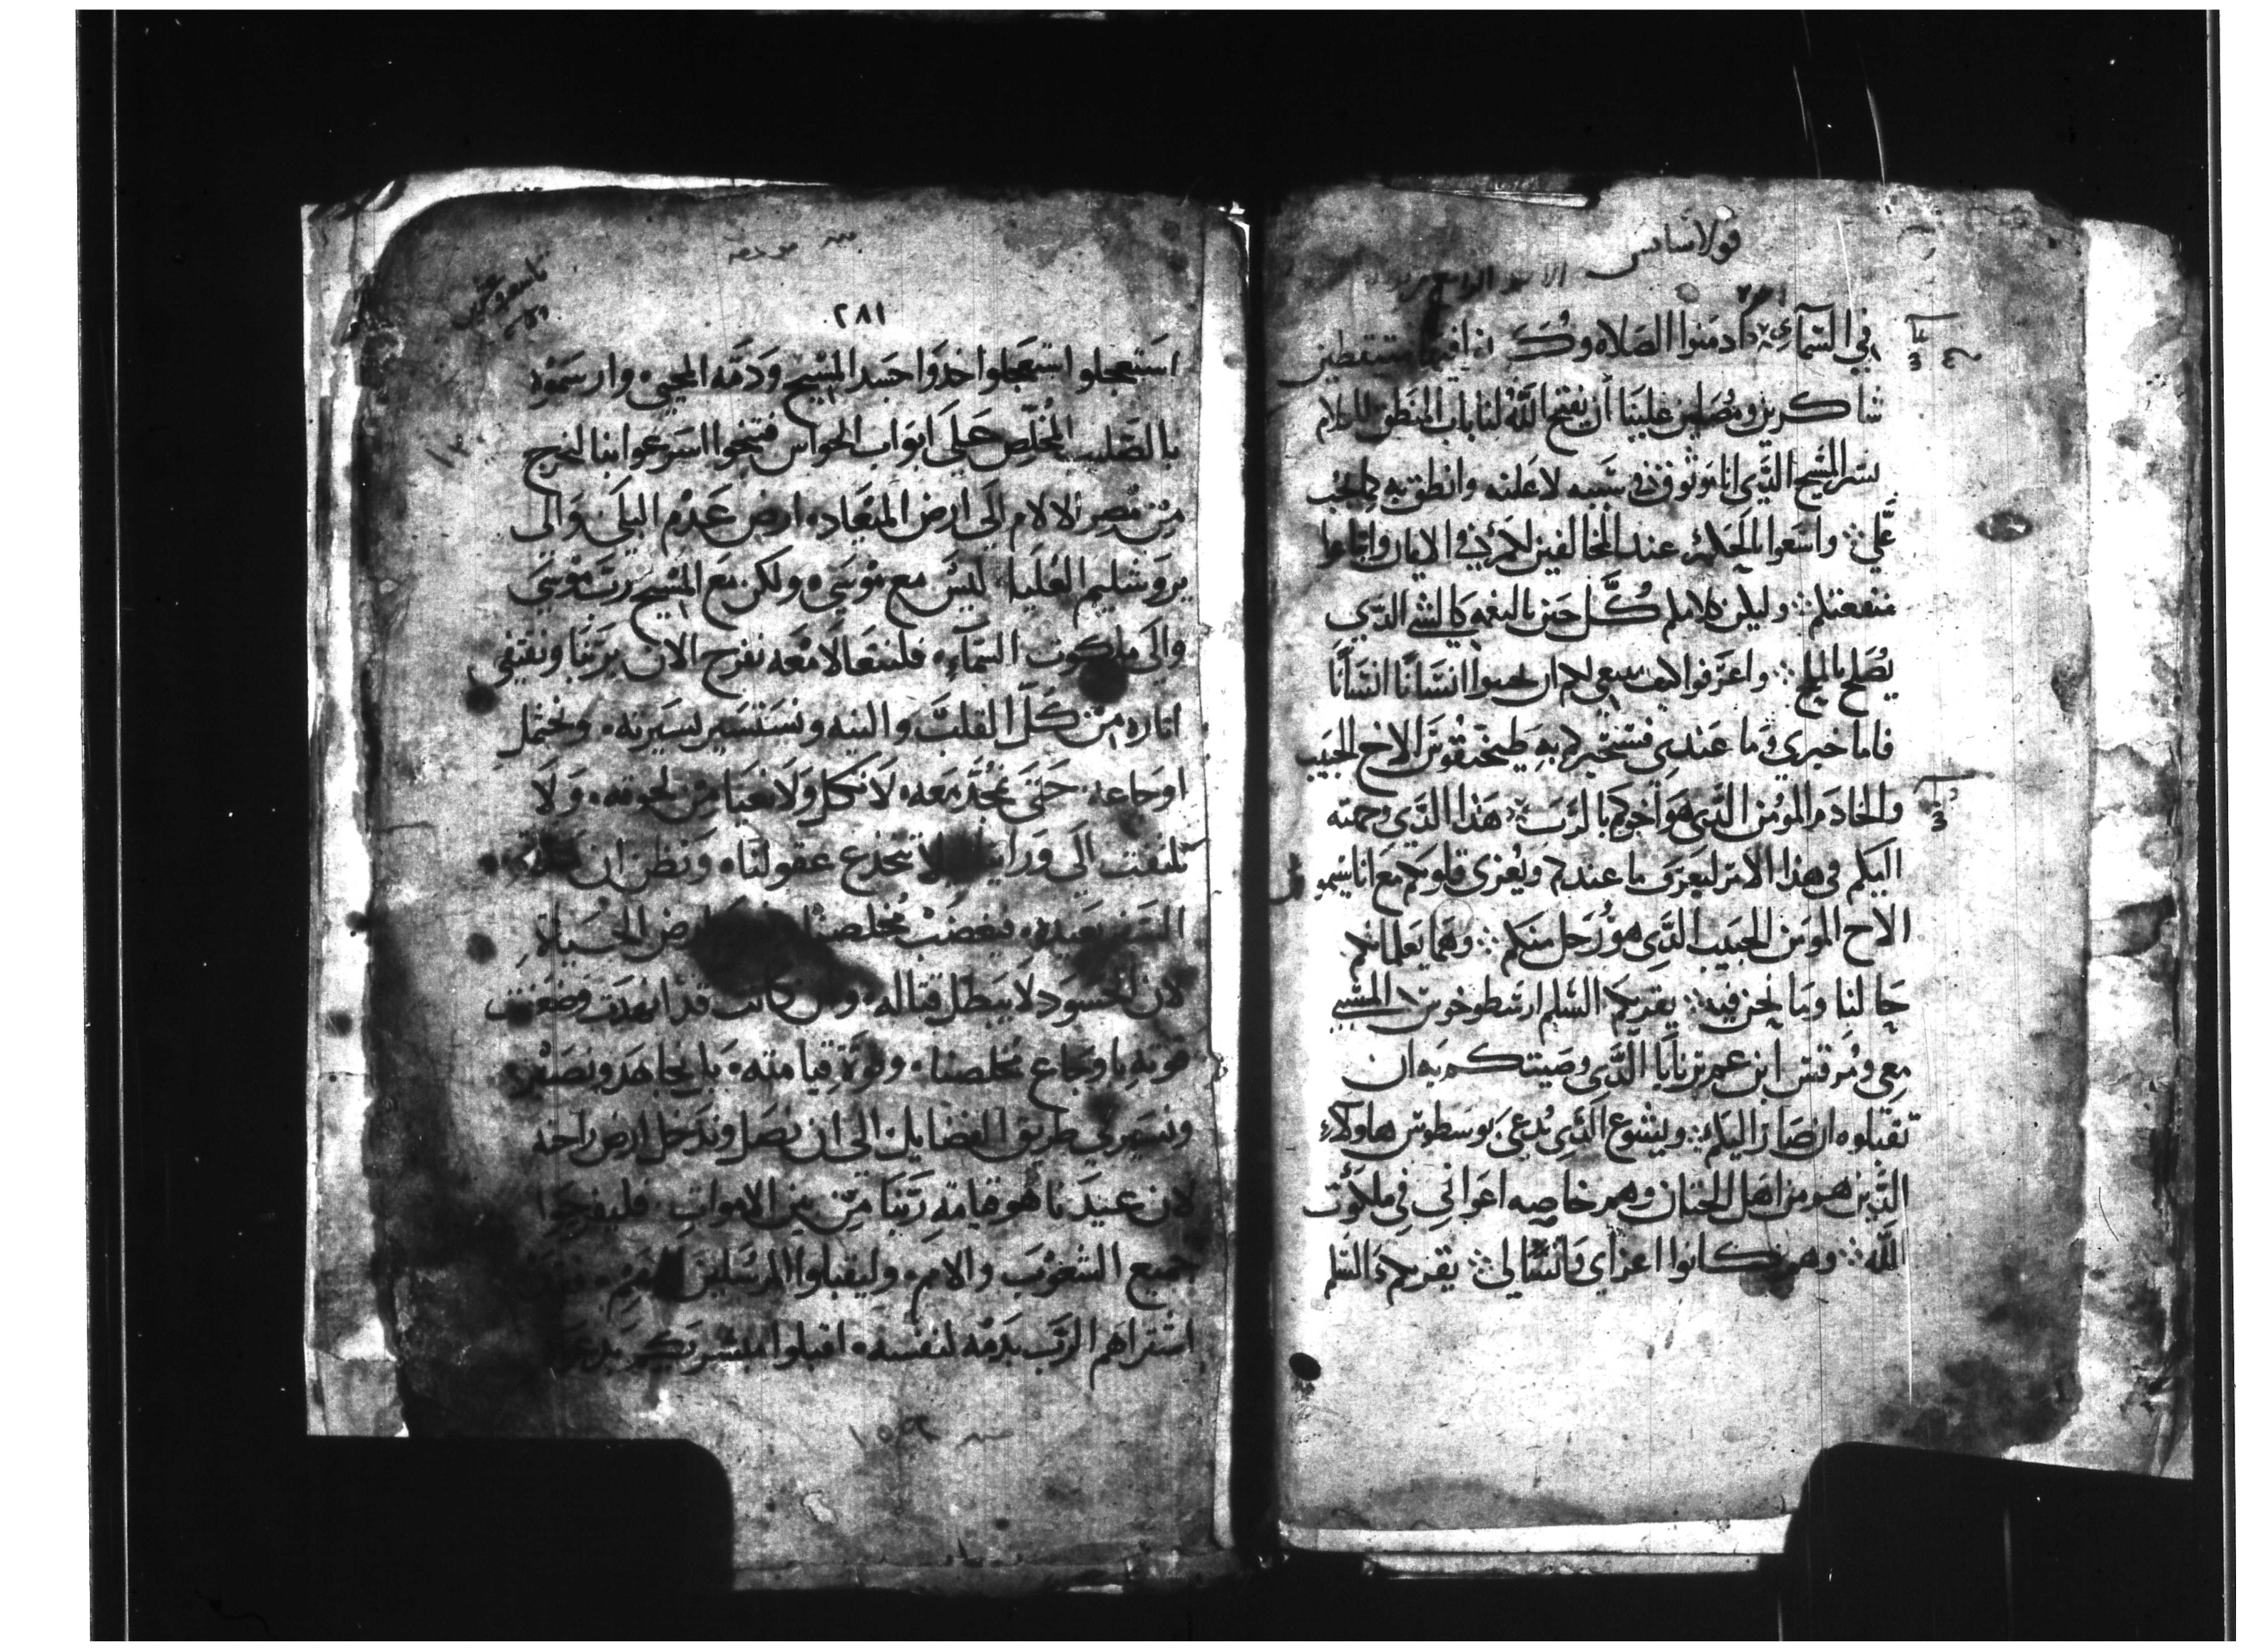 قولاسايس
في السماء ادمنوا الصلاه وكونوا فيها مستيقظين
شاكرين ومصلين علينا أن يفتح الله لنا باب المنطق لكلام
سر المسيح الذي انا موثوق في سببه لاعلنه وانطق به كما يجب
علي واسعوا بالحكمه عند المخالفين لكم في الايمان وابتاعوا
منفعتكم وليكن كلامكم كل حين بالنعمه كالشي الذي
يصلح بالملح واعرفوا كيف ينبغي لكم ان تجيبوا انسانا انسانا
فاما خبري وما عندي فسيخبركم به طيخيقوس الاخ الحبيب
والخادم المومن الذي هو اخوكم بالرب هذا الذي وجهته
اليكم في هذا الامر ليعرف ما عندكم ويعزي قلوبكم مع اناسيمو
الاخ المومن الحبيب الذي هو رجل منكم وهما يعلمانكم
حالنا وما نحن فيه يقريكم السلم ارسطوخوس المسبي
معي ومرقس ابن عم برنابا الذي وصيتكم به ان
تقبلوه ان صار اليكم ويشوع الذي يدعى يوسطوس هاولاء
الذين هم من اهل الختان وهم خاصه اعواني في ملكوت
الله وهم كانوا اعزاي وانسالي يقريكم السلم
٢٨١
استعجلوا استعجلوا خذوا جسد المسيح ودمه المحيي وارسموه
بالصليب المخلص على ابواب الحواس فتنجوا اسرعوا بنا لنخرج
من مصر الالام الى ارض الميعاد ارض عدم البلى والى
يروشليم العليا ليس مع موسى ولكن مع المسيح رب موسى
والى ملكوت السماء فلنتعالا معه نفرح الان بربنا ونقتفي
اثاره من كل القلب والنيه ونستسير بسيرته ونحتمل
اوجاعه حتى نمجد معه لا نكل ولا نعيا من لحوقه ولا
نلتفت الى ورا لا تنخدع عقولنا ونظن ان
بعيده فيغضب مخلصنا ارض
لان الحسود لا يبطل قتاله وان كانت قد انهدت وضعفت
قوته باوجاع مخلصنا وقوة قيامته بل نجاهد ونصبر
ونسير في طريق الفضايل الى ان نصل وندخل ارض راحته
لان عيدنا هو قيامة ربنا من بين الاموات فليفرحوا
جميع الشعوب والامم وليقبلوا المرسلين
اشتراهم الرب بدمه لنفسه اقبلوا مبشريكم